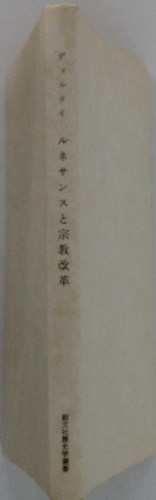 ディルタイ ルネサンスと宗教改革
創文社歴史学叢書